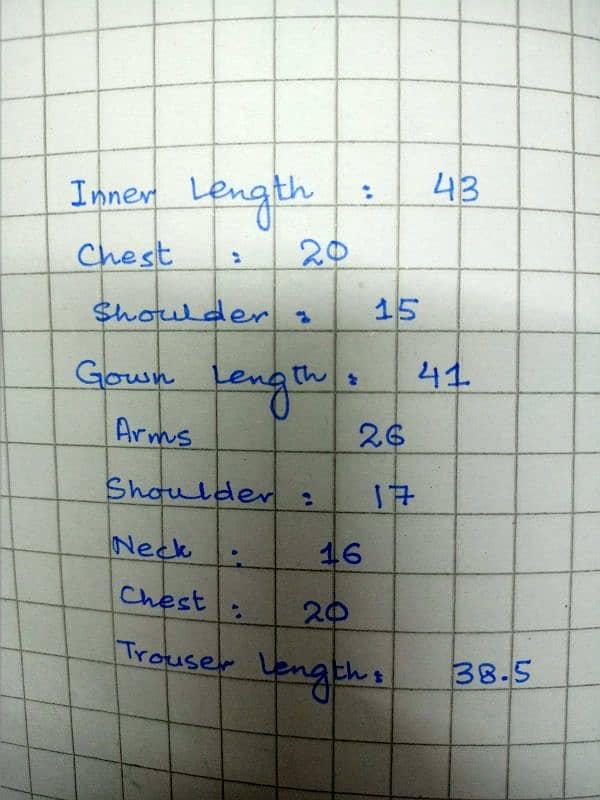 Inner Length : 43
Chest : 20
Shoulder : 15
Gown Length : 41
Arms 26
Shoulder : 17
Neck : 16
Chest : 20
Trouser Length : 38.5